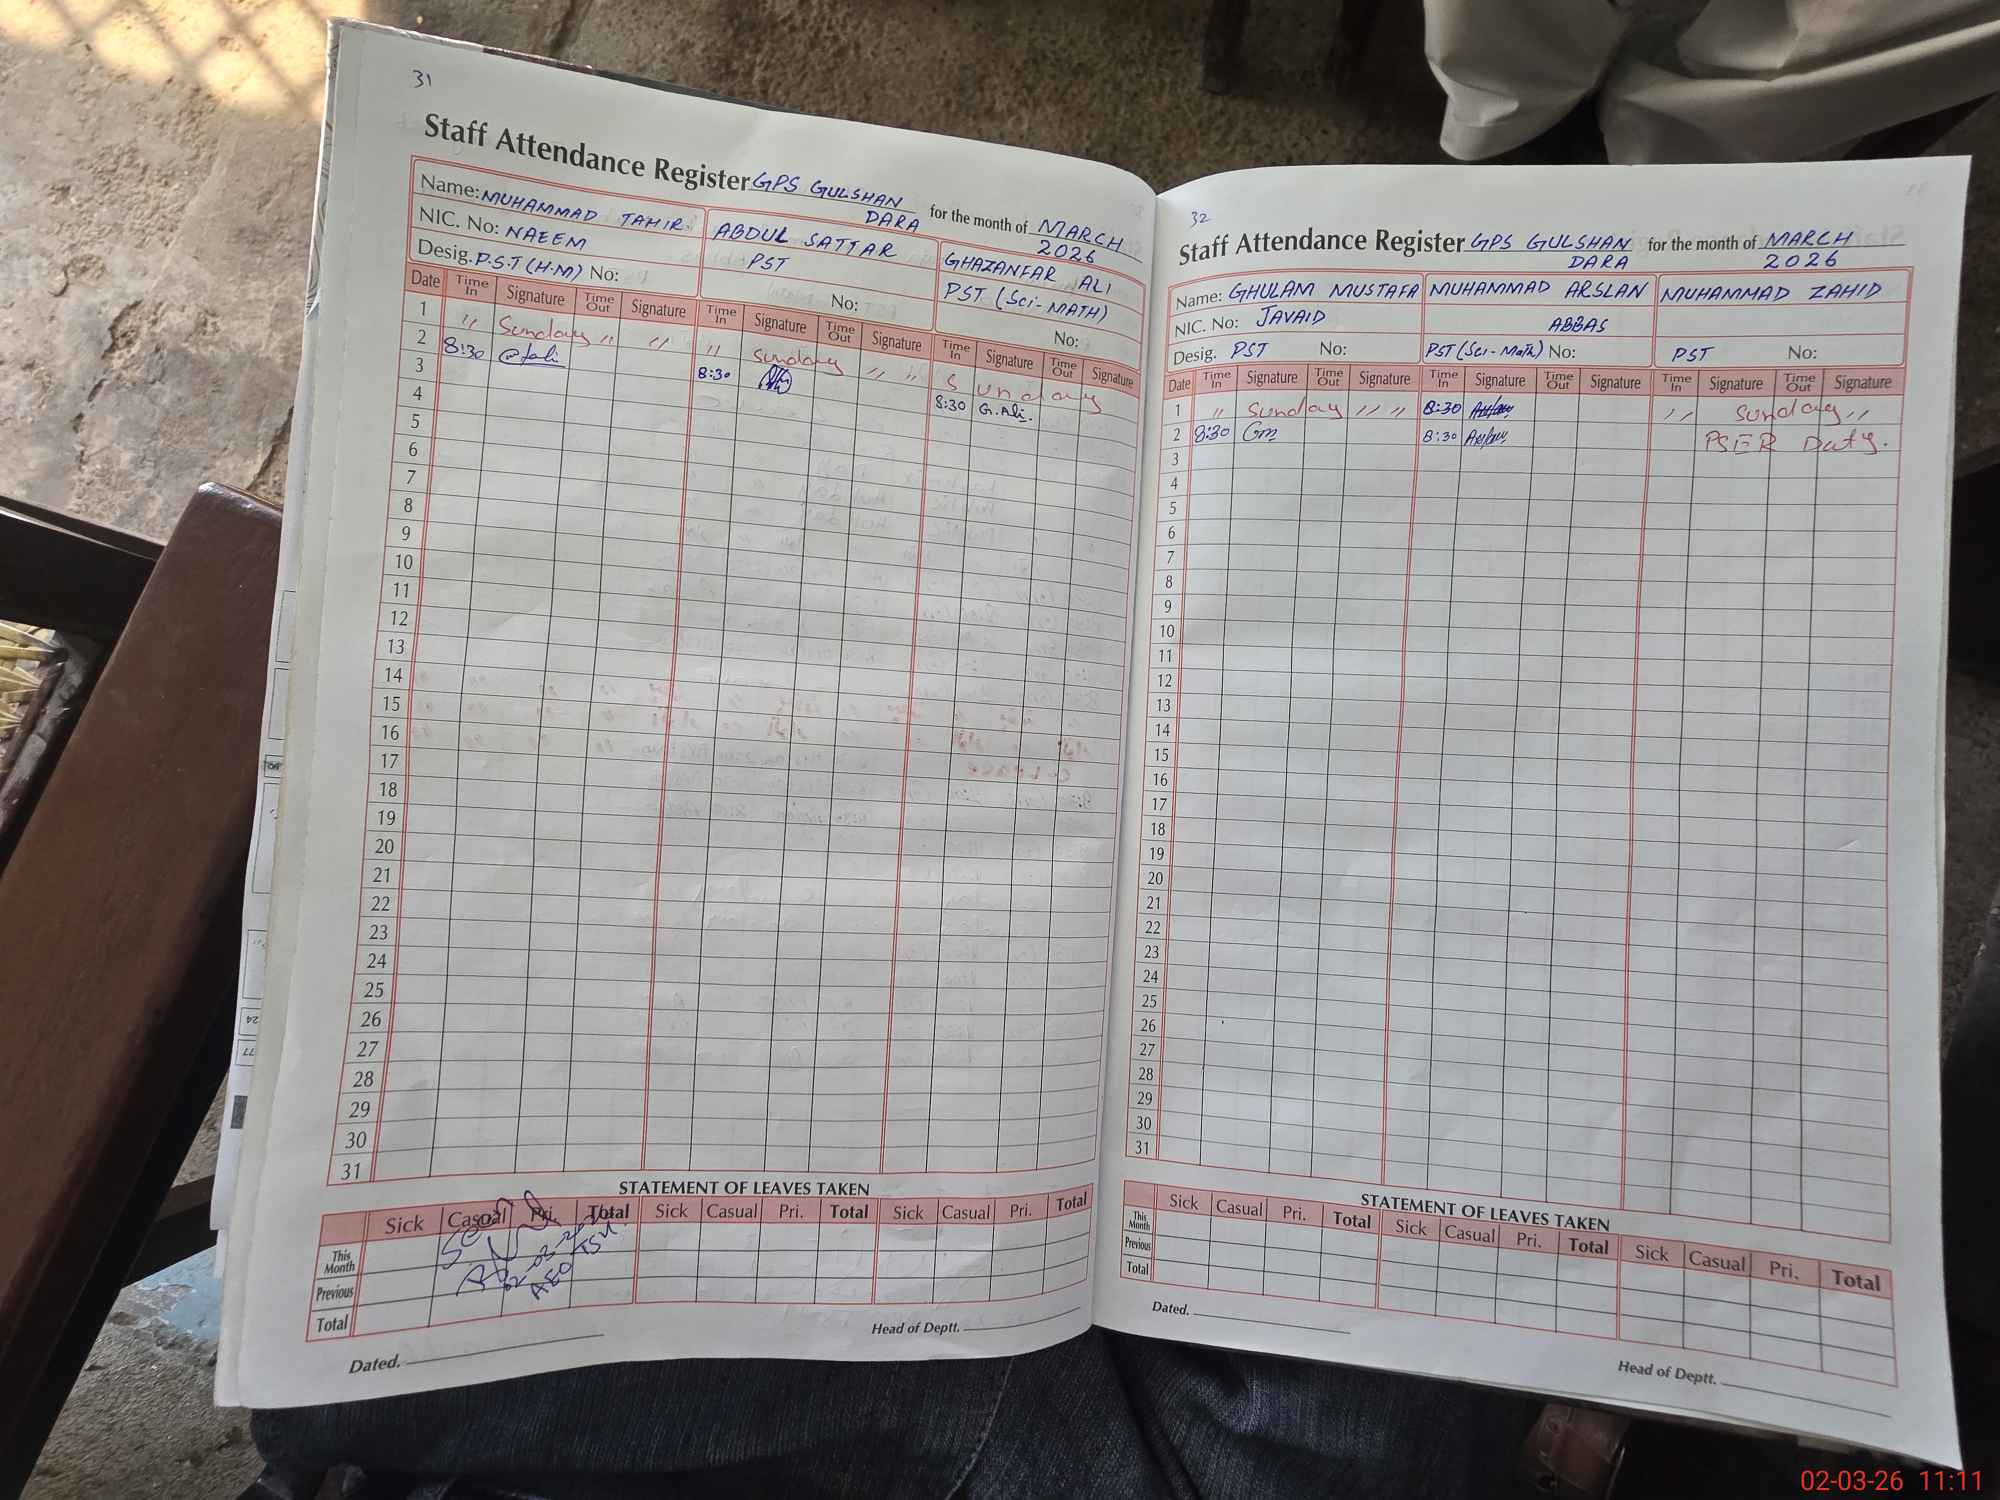 31
Staff Attendance Register GPS GULSHAN DARA for the month of MARCH 2026
Name: MUHAMMAD TAHIR NAEEM
NIC. No:
Desig. P.S.T (H.M) No:
ABDUL SATTAR
PST
No:
GHAZANFAR ALI
PST (Sci-MATH)
No:
Date Time In Signature Time Out Signature Time In Signature Time Out Signature Time In Signature Time Out Signature
1 〃 Sunday 〃 〃 〃 Sunday 〃 〃 Sunday
2 8:30 8:30 8:30 G.Ali.
3
4
5
6
7
8
9
10
11
12
13
14
15
16
17
18
19
20
21
22
23
24
25
26
27
28
29
30
31
STATEMENT OF LEAVES TAKEN
Sick Casual Pri. Total Sick Casual Pri. Total Sick Casual Pri. Total
This Month
Previous
Total
AEO
Dated.
Head of Deptt.
32
Staff Attendance Register GPS GULSHAN DARA for the month of MARCH 2026
Name: GHULAM MUSTAFA JAVAID
NIC. No:
Desig. PST No:
MUHAMMAD ARSLAN ABBAS
PST (Sci-Math) No:
MUHAMMAD ZAHID
PST No:
Date Time In Signature Time Out Signature Time In Signature Time Out Signature Time In Signature Time Out Signature
1 〃 Sunday 〃 〃 8:30 〃 Sunday 〃
2 8:30 Gm 8:30 PSER Duty.
3
4
5
6
7
8
9
10
11
12
13
14
15
16
17
18
19
20
21
22
23
24
25
26
27
28
29
30
31
STATEMENT OF LEAVES TAKEN
Sick Casual Pri. Total Sick Casual Pri. Total Sick Casual Pri. Total
This Month
Previous
Total
Dated.
Head of Deptt.
02-03-26 11:11